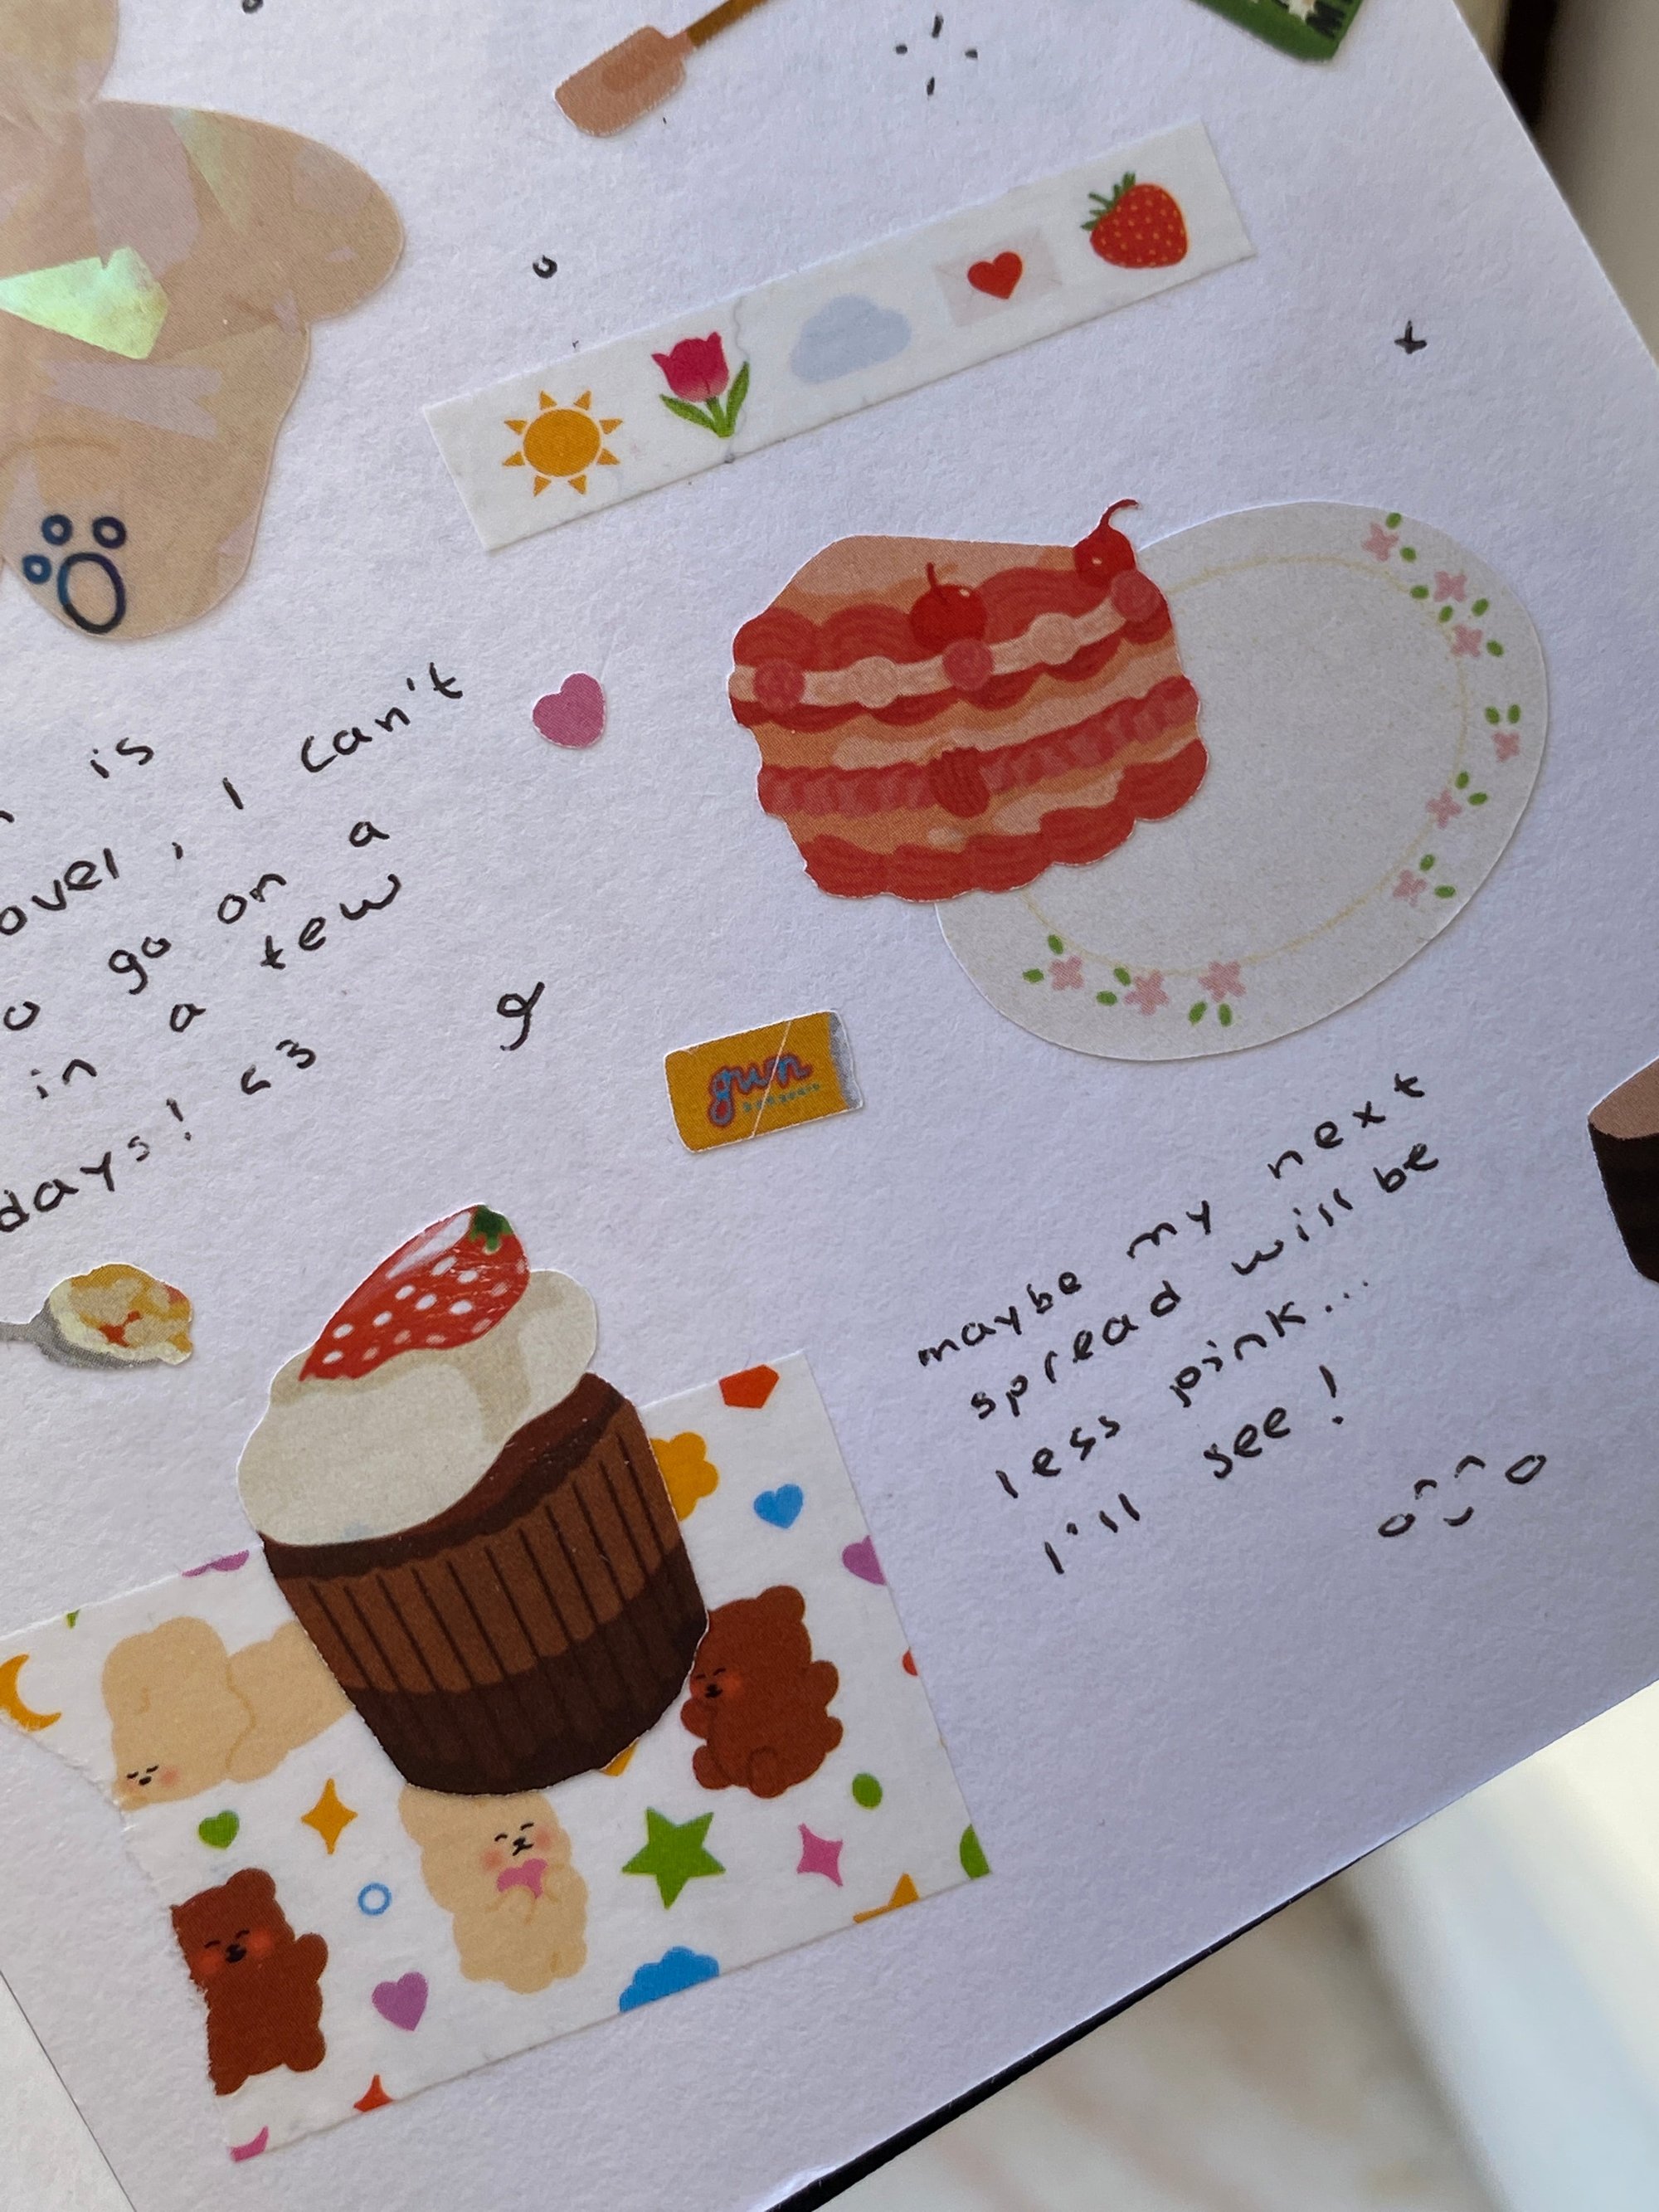 is
over, I can't
go on a
in a few
days! <3
&
gum
maybe my next
spread will be
less pink...
I'll see!